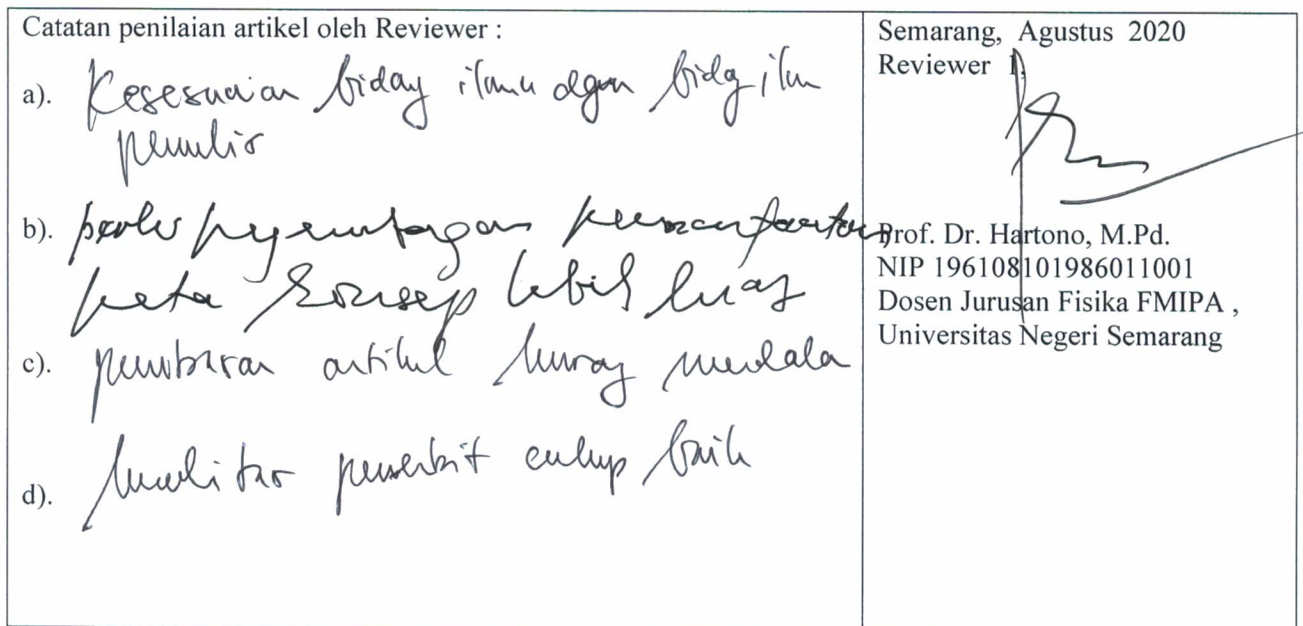 Catatan penilaian artikel oleh Reviewer :
a). Kesesuaian bidang ilmu dgn bidg ilmu
penulis
b). perlu pengembangan pemanfaatan
peta konsep lebih luas
c). pembahasan artikel kurang mendala
d). kualitas penerbit cukup baik
Semarang, Agustus 2020
Reviewer 1,
Prof. Dr. Hartono, M.Pd.
NIP 196108101986011001
Dosen Jurusan Fisika FMIPA ,
Universitas Negeri Semarang